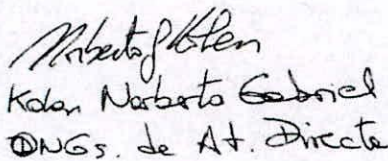 Norberto G Kolen
Kolen Norberto Gabriel
ONGs. de At. Directa